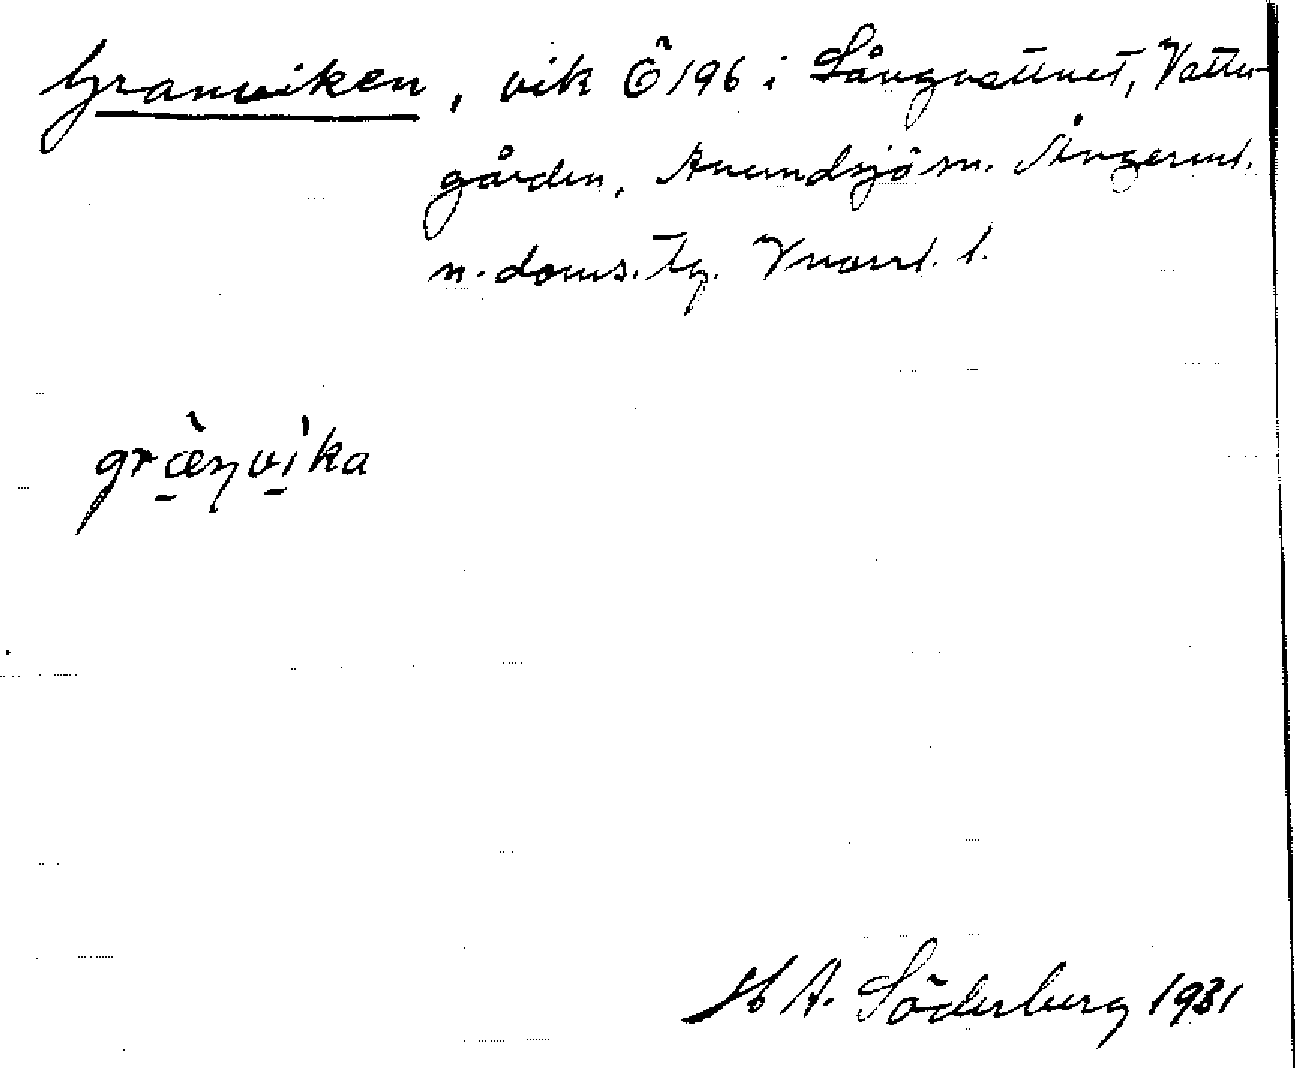 Granviken, vik Ö 196 i Långvattnet, Vatten-
gården, Anundsjö sn. Ångerml.
n. doms. tg. Vnorrl. l.
græ̀nvi̍ka
H A. Söderberg 1931